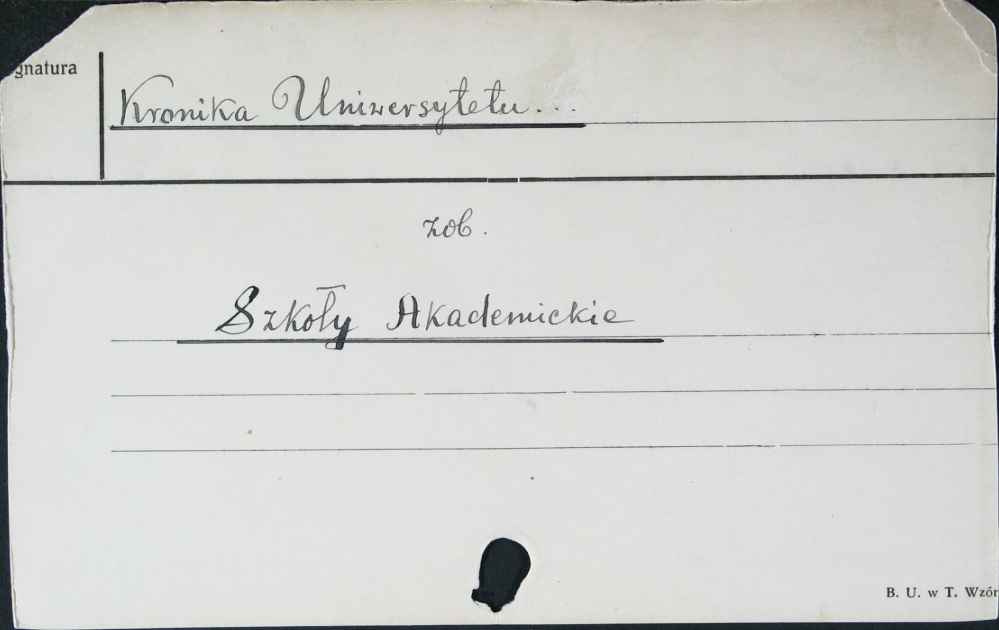 gnatura
Kronika Uniwersytetu...
zob.
Szkoły Akademickie
B. U. w T. Wzór